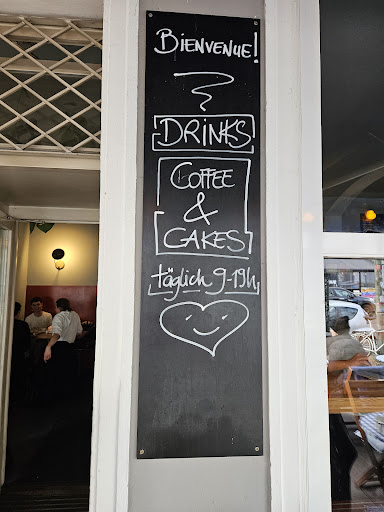 BIENVENUE!
DRINKS
COFFEE
&
CAKES
täglich 9-19h